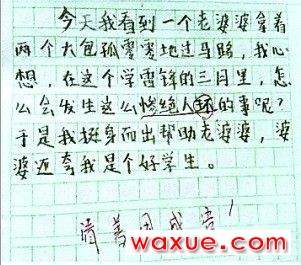 今天我看到一个老婆婆拿着
两个大包孤零零地过马路，我心
想，在这个学雷锋的三月里，怎
么会发生这么惨绝人环的事呢？
于是我挺身而出帮助老婆婆，婆
婆还夸我是个好学生。
请善用成语！
waxue.com